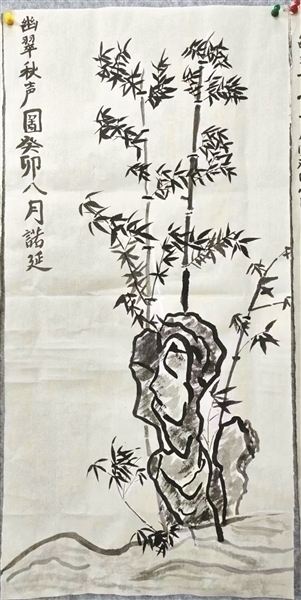 幽翠秋声圖癸卯八月諾延